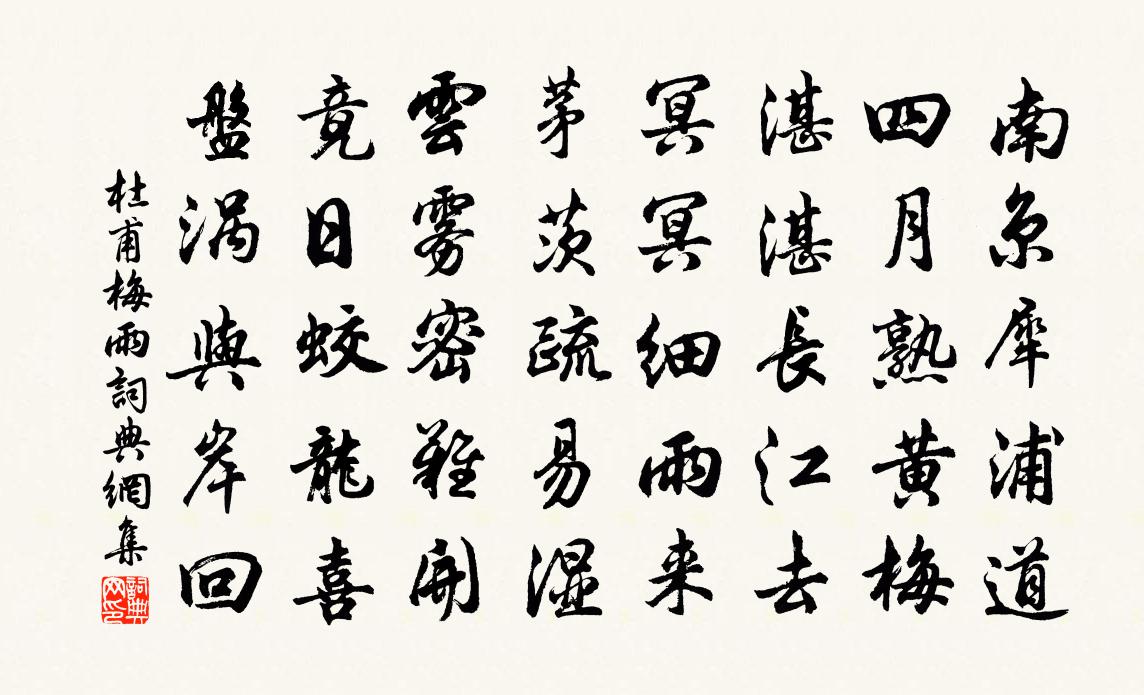 南京犀浦道
四月熟黄梅
湛湛長江去
冥冥細雨来
茅茨疏易湿
雲雾密難開
竟日蛟龍喜
盤渦與岸回
杜甫梅雨詞典網集
詞典网印